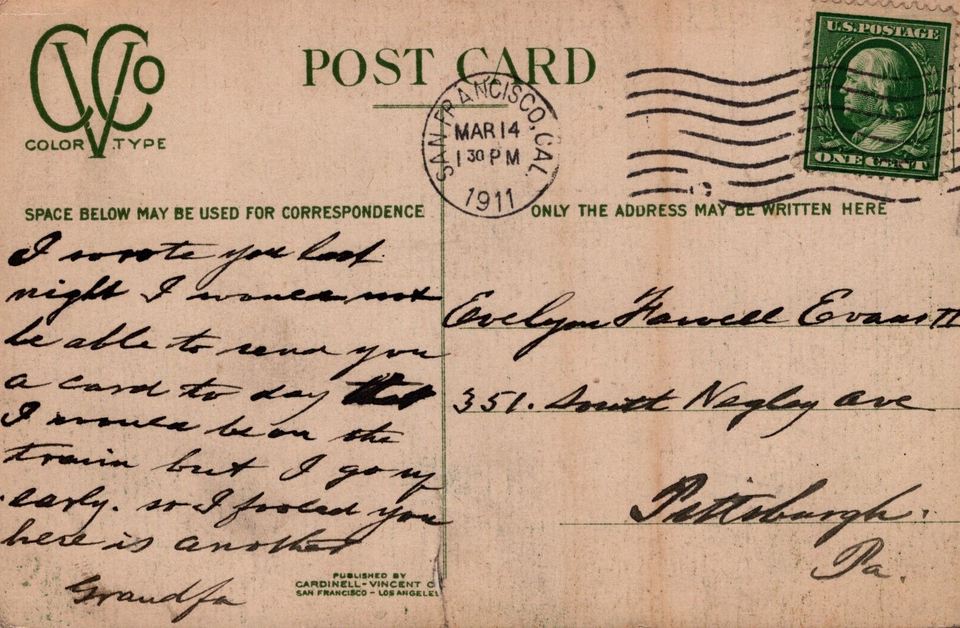 CVCo
COLOR TYPE
POST CARD
SAN FRANCISCO, CAL.
MAR 14
1 30 PM
1911
U.S. POSTAGE
ONE CENT
SPACE BELOW MAY BE USED FOR CORRESPONDENCE
ONLY THE ADDRESS MAY BE WRITTEN HERE
I wrote you last
night I would not
be able to send you
a card to day
I would be on the
train but I go
early. so I fooled you
here is another
Grandfa
Evelyn Farwell Evans II
351. South Negley Ave
Pittsburgh.
Pa.
PUBLISHED BY
CARDINELL-VINCENT C
SAN FRANCISCO - LOS ANGELES